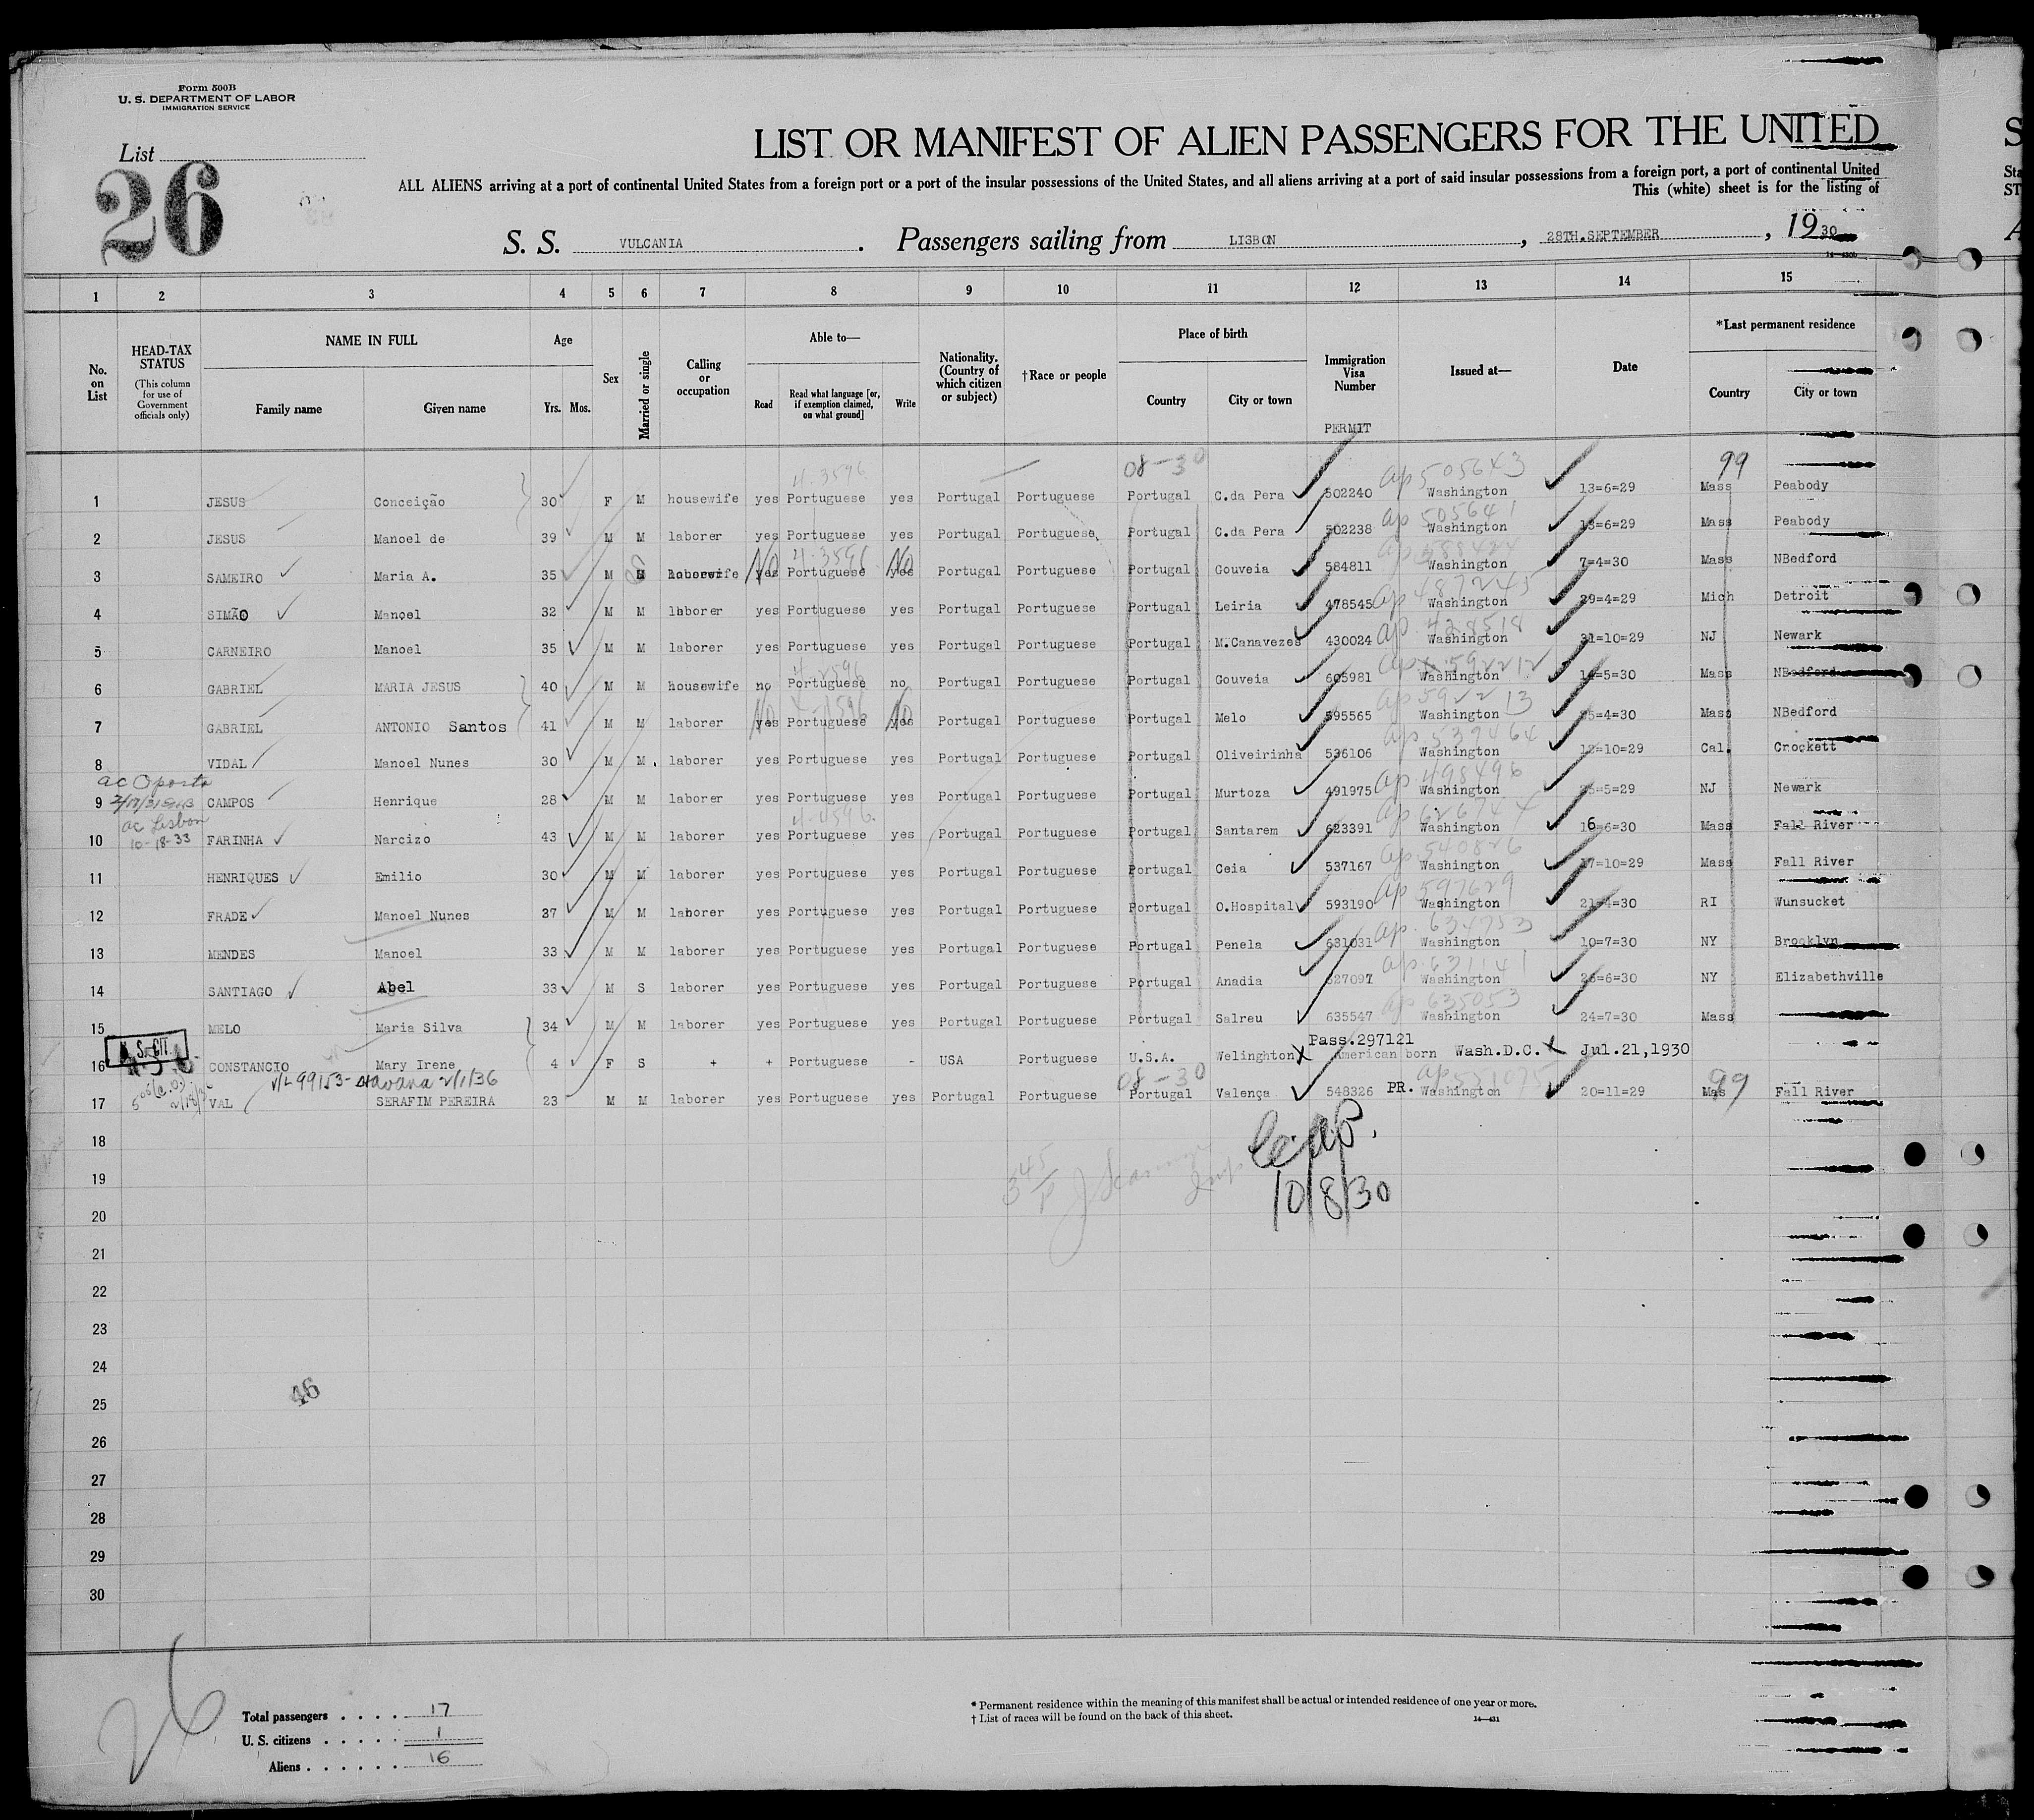 Form 500B
U. S. DEPARTMENT OF LABOR
IMMIGRATION SERVICE
List
26
LIST OR MANIFEST OF ALIEN PASSENGERS FOR THE UNITED
ALL ALIENS arriving at a port of continental United States from a foreign port or a port of the insular possessions of the United States, and all aliens arriving at a port of said insular possessions from a foreign port, a port of continental United
This (white) sheet is for the listing of
S. S. VULCANIA . Passengers sailing from LISBON , 28TH.SEPTEMBER , 19 30
1 2 3 4 5 6 7 8 9 10 11 12 13 14 15
No. on List
HEAD-TAX STATUS (This column for use of Government officials only)
NAME IN FULL Family name Given name
Age Yrs. Mos.
Sex
Married or single
Calling or occupation
Able to— Read Read what language [or, if exemption claimed, on what ground] Write
Nationality. (Country of which citizen or subject)
†Race or people
Place of birth Country City or town
Immigration Visa Number PERMIT
Issued at—
Date
*Last permanent residence Country City or town
4-3596 08-30 ap 505643 99
1 JESUS Conceição 30 F M housewife yes Portuguese yes Portugal Portuguese Portugal C.da Pera 502240 Washington 13=6=29 Mass Peabody
ap 505641
2 JESUS Manoel de 39 M M laborer yes Portuguese yes Portugal Portuguese Portugal C.da Pera 502238 Washington 13=6=29 Mass Peabody
No 4-3596 No
3 SAMEIRO Maria A. 35 M housewife yes Portuguese yes Portugal Portuguese Portugal Gouveia 584811 Washington 7=4=30 Mass NBedford
ap 487245
4 SIMÃO Manoel 32 M M laborer yes Portuguese yes Portugal Portuguese Portugal Leiria 478545 Washington 29=4=29 Mich Detroit
ap. 428518
5 CARNEIRO Manoel 35 M M laborer yes Portuguese yes Portugal Portuguese Portugal M.Canavezes 430024 Washington 31=10=29 NJ Newark
ap 592212
6 GABRIEL MARIA JESUS 40 M M housewife no Portuguese no Portugal Portuguese Portugal Gouveia 605981 Washington 14=5=30 Mass NBedford
No No ap 592213
7 GABRIEL ANTONIO Santos 41 M M laborer yes Portuguese yes Portugal Portuguese Portugal Melo 595565 Washington 25=4=30 Mass NBedford
ap 539464
8 VIDAL Manoel Nunes 30 M M laborer yes Portuguese yes Portugal Portuguese Portugal Oliveirinha 536106 Washington 12=10=29 Cal. Crockett
ac Oporto ap 498496
9 CAMPOS Henrique 28 M M laborer yes Portuguese yes Portugal Portuguese Portugal Murtoza 491975 Washington =5=29 NJ Newark
ac Lisbon 10-18-33 4-4596. ap 626744
10 FARINHA Narcizo 43 M M laborer yes Portuguese yes Portugal Portuguese Portugal Santarem 623391 Washington 16=6=30 Mass Fall River
ap 540826
11 HENRIQUES Emilio 30 M M laborer yes Portuguese yes Portugal Portuguese Portugal Ceia 537167 Washington 17=10=29 Mass Fall River
ap 597629
12 FRADE Manoel Nunes 37 M M laborer yes Portuguese yes Portugal Portuguese Portugal O.Hospital 593190 Washington 21=4=30 RI Wunsucket
ap. 634753
13 MENDES Manoel 33 M M laborer yes Portuguese yes Portugal Portuguese Portugal Penela 631031 Washington 10=7=30 NY Brooklyn
ap. 631141
14 SANTIAGO Abel 33 M S laborer yes Portuguese yes Portugal Portuguese Portugal Anadia 627097 Washington 26=6=30 NY Elizabethville
ap 635053
15 MELO Maria Silva 34 M M laborer yes Portuguese yes Portugal Portuguese Portugal Salreu 635547 Washington 24=7=30 Mass
U. S. CIT. Pass.297121
16 CONSTANCIO Mary Irene 4 F S + + Portuguese - USA Portuguese U.S.A. Welinghton American born Wash.D.C. Jul.21,1930
V/L 99153- Havana 2/1/36 08-30 99
17 VAL SERAFIM PEREIRA 23 M M laborer yes Portuguese yes Portugal Portuguese Portugal Valença 548326 PR. Washington 20=11=29 Mas Fall River
18
19
10/8/30
20
21
22
23
24
46
25
26
27
28
29
30
26
Total passengers . . . . 17
U. S. citizens . . . . . 1
Aliens . . . . . . 16
* Permanent residence within the meaning of this manifest shall be actual or intended residence of one year or more.
† List of races will be found on the back of this sheet.
14—431